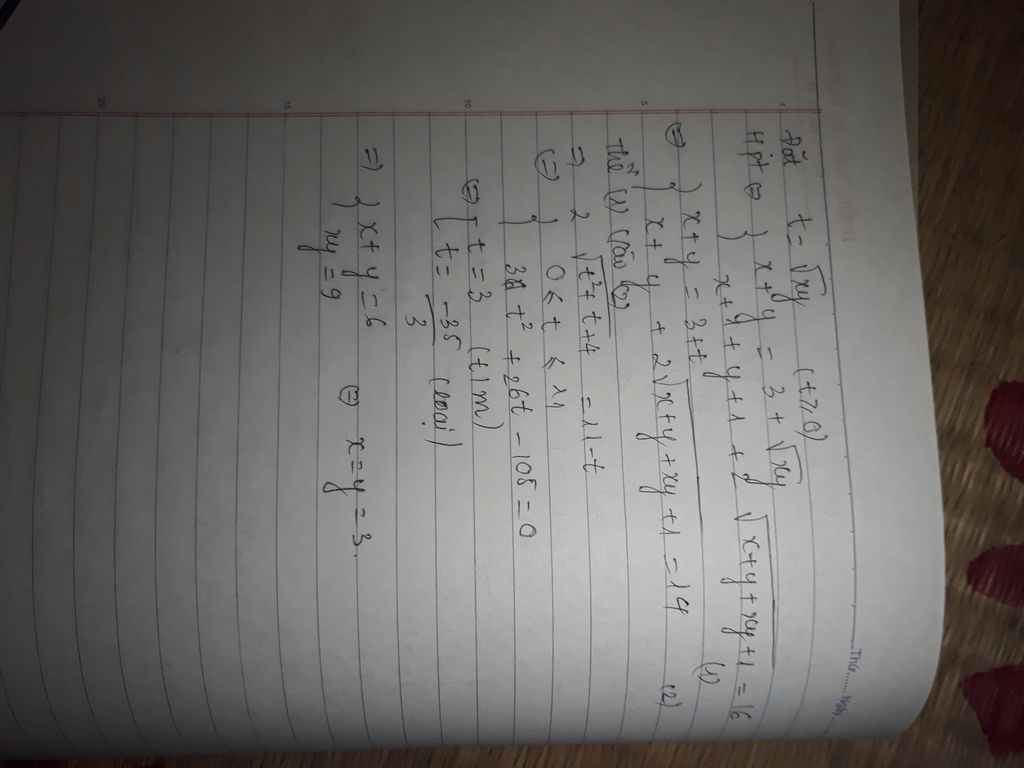 Thứ ...... Ngày
Đặt t = √xy (t ≥ 0)
Hpt ⇔ { x + y = 3 + √xy
{ x + y + 1 + 2 √x + y + xy + 1 = 16
⇔ { x + y = 3 + t (1)
{ x + y + 2√x + y + xy + 1 = 14 (2)
Thế (1) vào (2)
⇒ 2 √t² + t + 4 = 11 - t
⇔ { 0 ≤ t ≤ 11
{ 3t² + 26t - 105 = 0
⇔ [ t = 3 (t/m)
[ t = -35/3 (loại)
⇒ { x + y = 6
{ xy = 9 ⇔ x = y = 3.
1
5
10
15
20